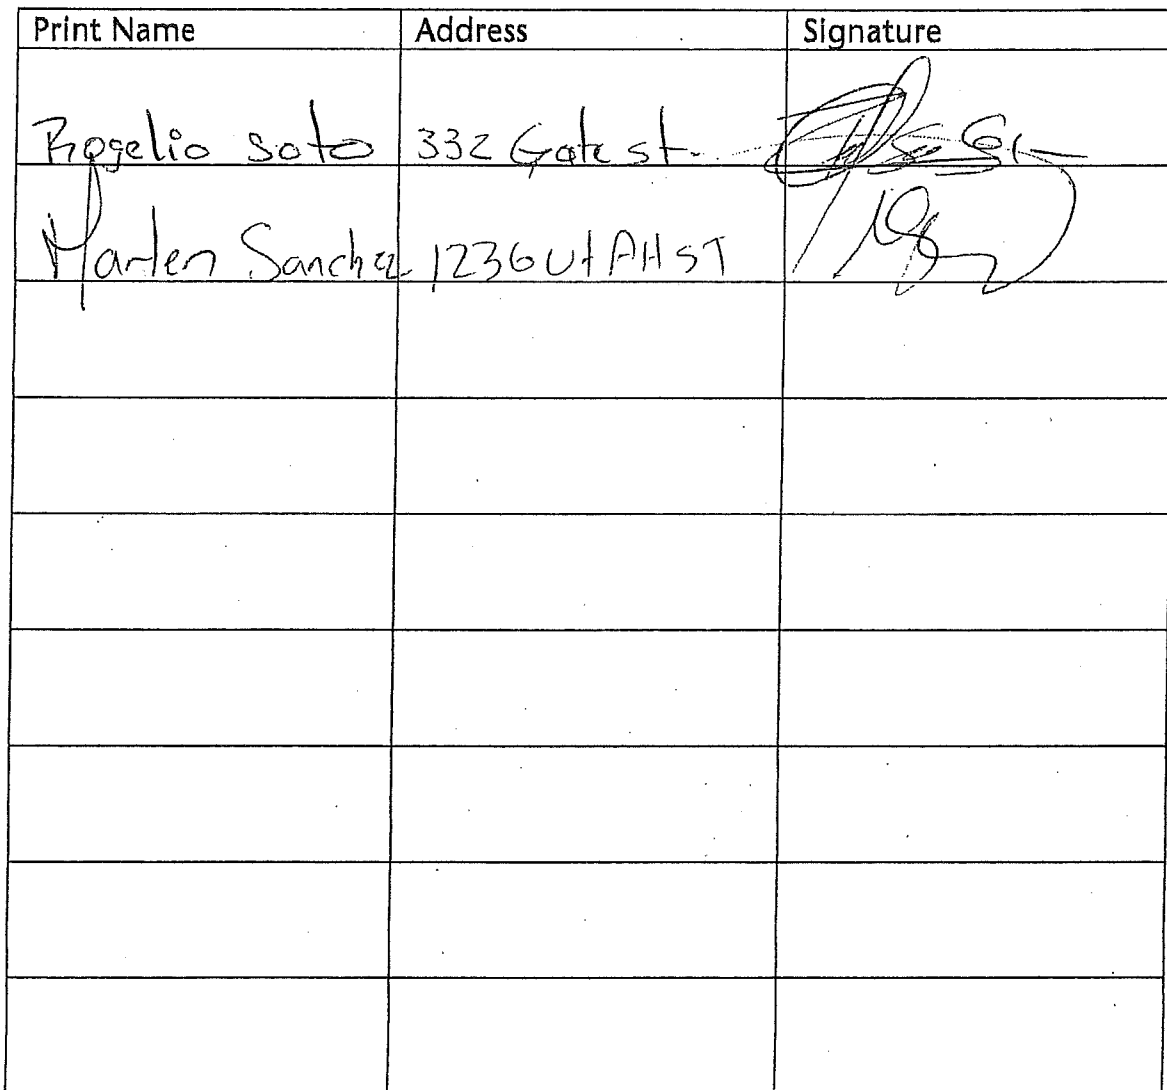 Print Name Address Signature
Rogelio Soto 332 Gate st.
Marlen Sanchez 1236 UtAH ST